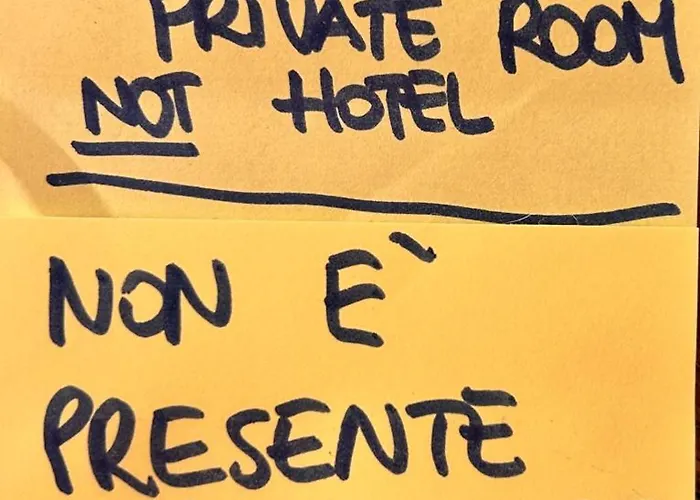 PRIVATE ROOM
NOT HOTEL
NON E`
PRESENTE